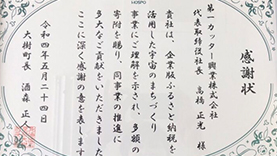 感謝状
第一カッター興業株式会社
代表取締役社長 高橋正光 様
貴社は、企業版ふるさと納税を
活用した宇宙のまちづくり
事業にご理解を示され、多額の
寄附を賜り、同事業の推進に
多大なご貢献をいただきました
ここに深く感謝の意を表します
令和四年五月二十四日
大樹町長 酒森正人